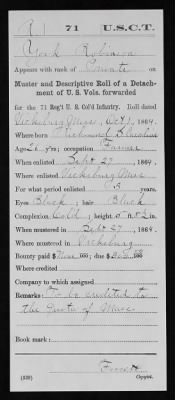 R | 71 | U.S.C.T.
York Robinson
Appears with rank of Private on
Muster and Descriptive Roll of a Detach-
ment of U. S. Vols. forwarded
for the 71 Reg't U. S. Col'd Infantry. Roll dated
Vicksburg Miss, Oct 1, 1864.
Where born Richmond S Carolina
Age 26 y'rs; occupation Farmer
When enlisted Sept 27, 1864.
Where enlisted Vicksburg Miss
For what period enlisted 3 years.
Eyes Black; hair Black
Complexion Cold; height 5 ft. 2 in.
When mustered in Sept 27, 1864.
Where mustered in Vicksburg
Bounty paid $ None 100; due $ 100
Where credited
Company to which assigned
Remarks: To be credited to
the Quota of Miss.
Book mark:
(339) Copyist.